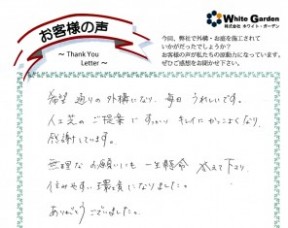 お客様の声
～ Thank You
Letter～
White Garden
株式会社 ホワイト・ガーデン
今回、弊社で外構・お庭を施工されて
いかがだったでしょうか？
お客様の声が私たちの原動力になっています。
ぜひご感想をお聞かせ下さい。
希望通りの外構になり、毎日うれしいです。
人工芝のご提案にすっかりキレイにかっこよくなり
感謝しています。
無理なお願いにも一生懸命 答えて下さり
住みやすい環境になりました。
ありがとうございました。